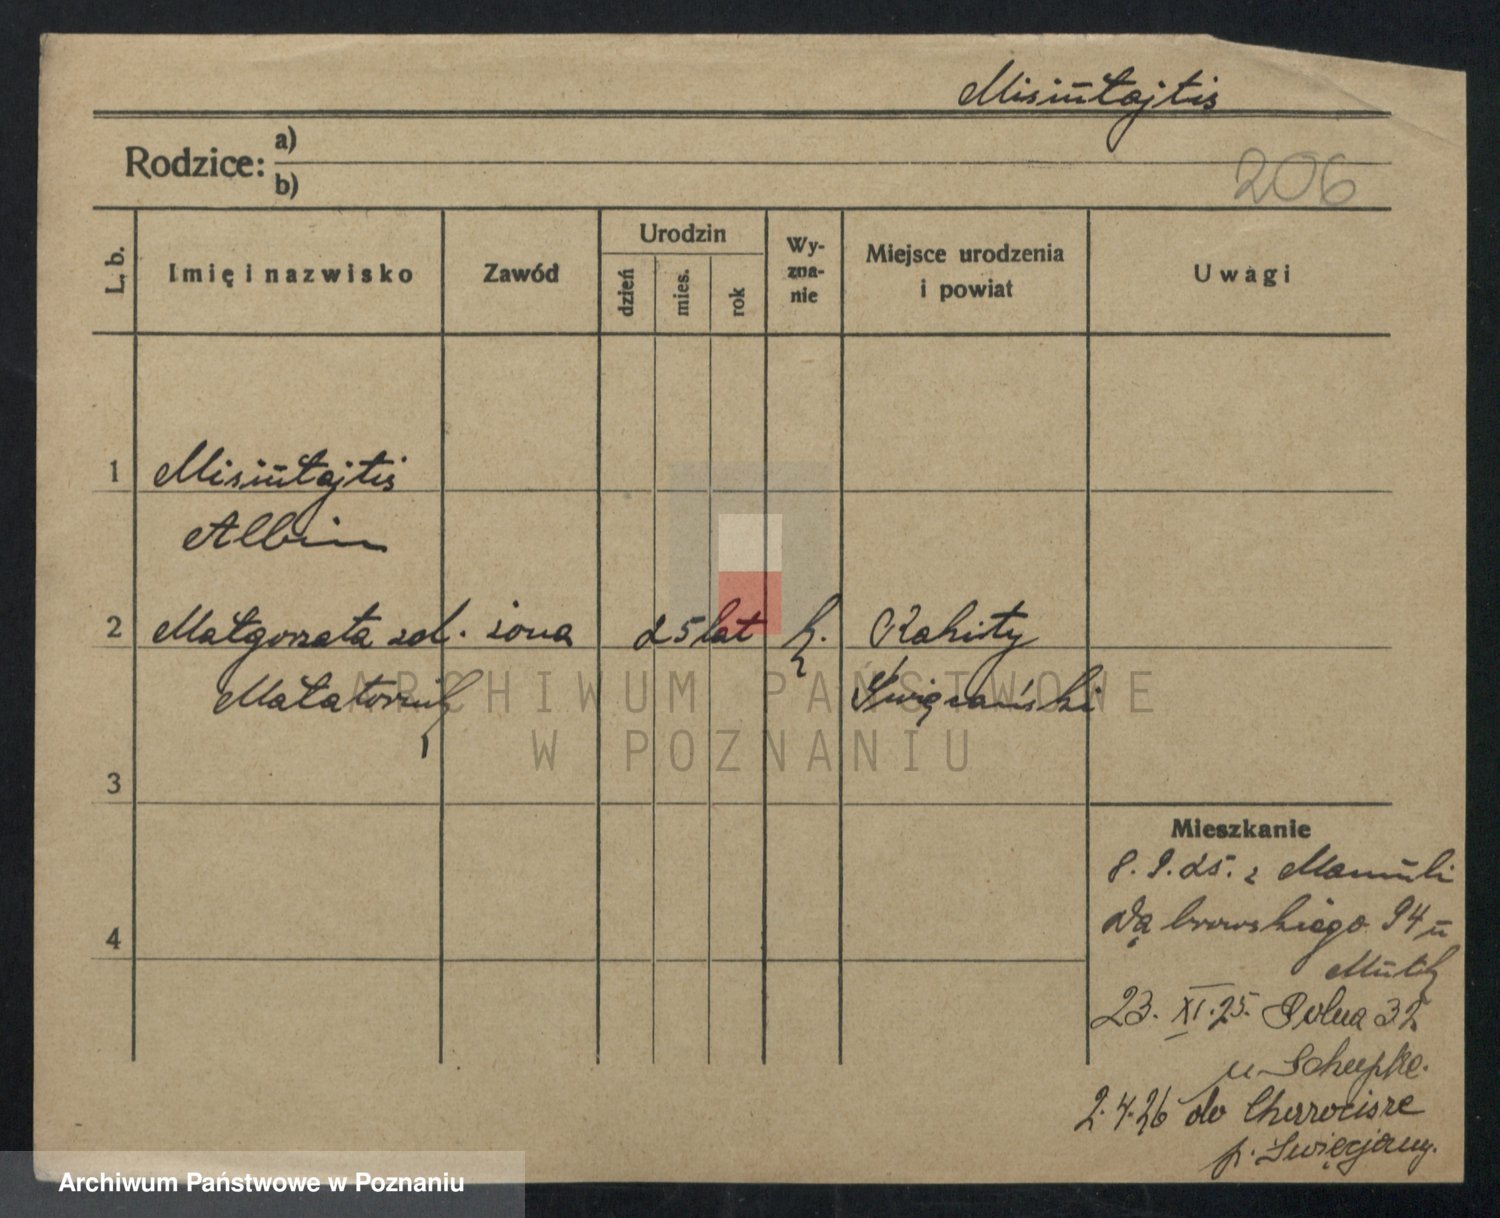 Misiŭtajtis
Rodzice: a)
b)
206
L. b.
Imię i nazwisko
Zawód
Urodzin
dzień
mies.
rok
Wy-
zna-
nie
Miejsce urodzenia
i powiat
Uwagi
1
Misiŭtajtis
Albin
2
Małgorzata zd. żona 25 lat k. Rakity
Święciański
3
Mieszkanie
8. 9. 25. z
Dąbrowskiego 94 ŭ
23. XI. 25. Polna 32
u Schupke.
2.4.26 do
p. Święcjany.
4
ARCHIWUM PAŃSTWOWE
W POZNANIU
Archiwum Państwowe w Poznaniu